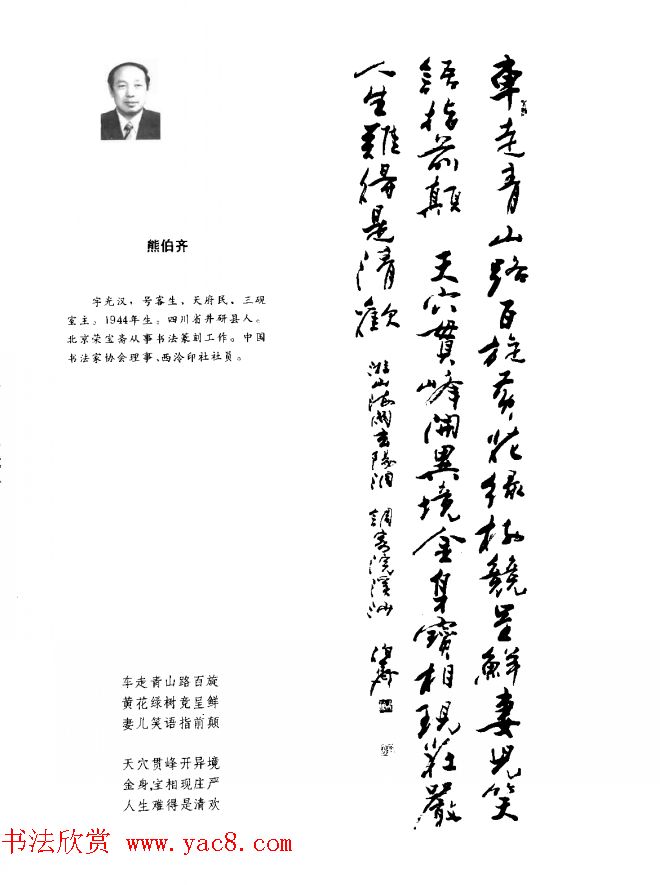 熊伯齐
字光汉，号容生、天府民、三砚
室主。1944年生。四川省井研县人。
北京荣宝斋从事书法篆刻工作。中国
书法家协会理事、西泠印社社员。
車走青山路百旋黄花绿树競呈鮮妻児笑
語指前颠 天穴貫峰開異境金身寶相現莊嚴
人生難得是清歡
调寄浣溪沙 伯齊
车走青山路百旋
黄花绿树竞呈鲜
妻儿笑语指前颠
天穴贯峰开异境
金身宝相现庄严
人生难得是清欢
书法欣赏 www.yac8.com